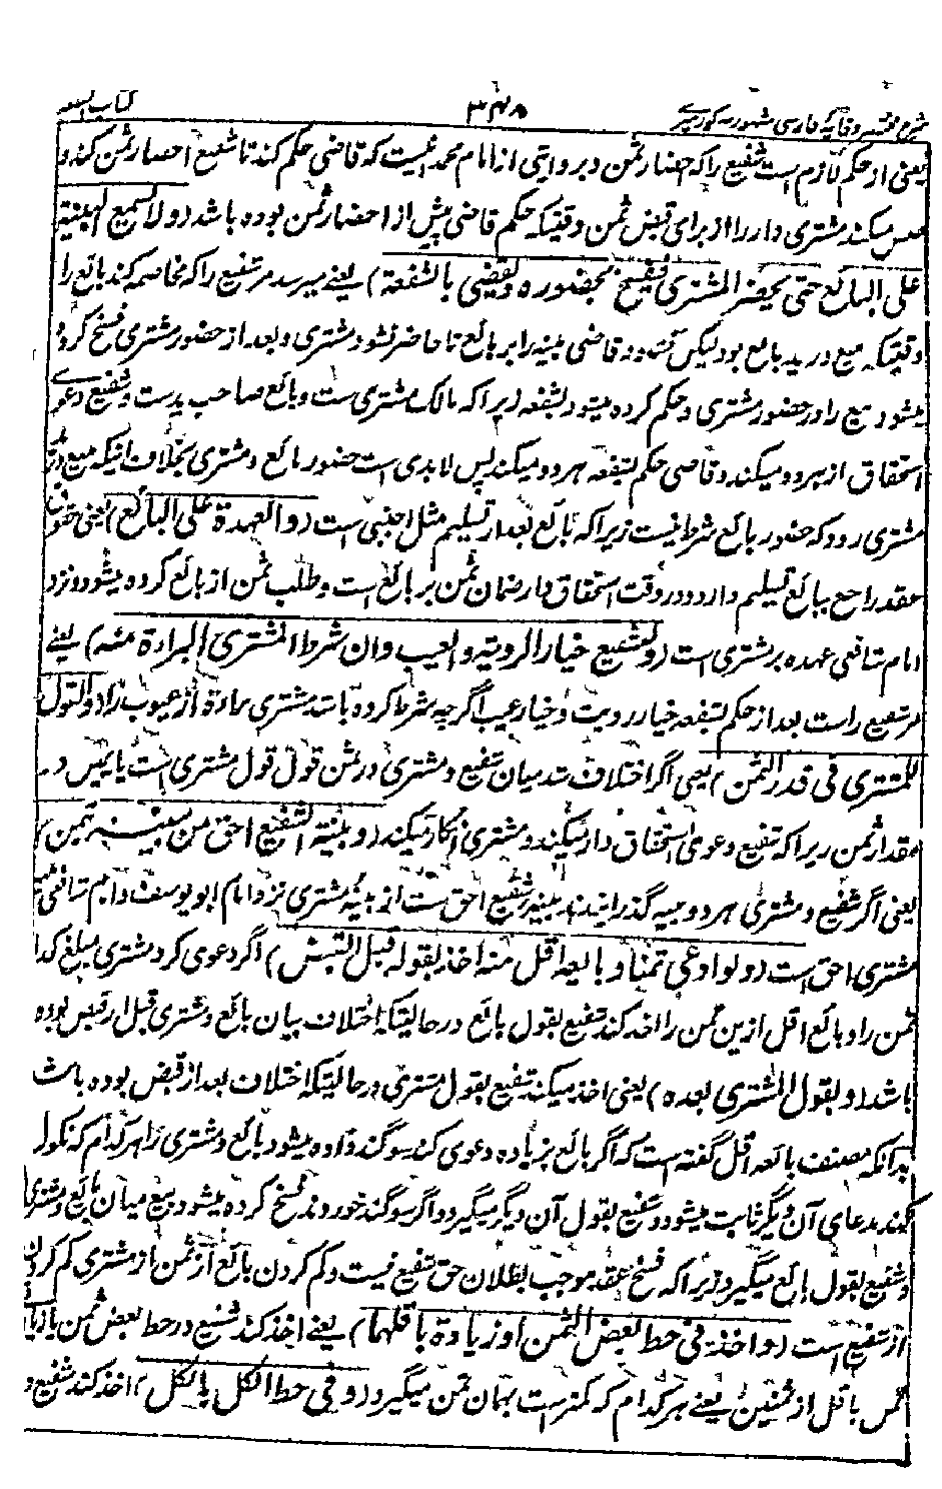 شرح مختصر وقایه فارسی مشهور به کورسیری ۳۴۸ کتاب الشفعه
یعنی از حکم لازم است شفیع را که احضار ثمن و بروایتی از امام محمد نیست که قاضی حکم کند تا شفیع احضار ثمن کند و
حبس میکند مشتری دار را از برای قبض ثمن وقتیکه حکم قاضی پیش از احضار ثمن بوده باشد (ولا تسمع البینة
علی البائع حتی یحضر المشتری فیفسخ بحضوره ویقضی بالشفعة) یعنے میرسد مر شفیع را که مخاصمه کند بائع را
وقتیکه مبیع در ید بائع بود لیکن نشنود قاضی بینه را بر بائع تا حاضر نشود مشتری و بعد از حضور مشتری فسخ کرده
میشود بیع را در حضور مشتری و حکم کرده میشود بشفعه زیرا که مالک مشتری ست و بائع صاحب ید ست و شفیع دعوے
استحقاق از هر دو میکند و قاضی حکم بشفعه هر دو میکند پس لابدی است حضور بائع و مشتری بخلاف انیکه مبیع در
مشتری رود که حضور بائع شرط نیست زیرا که بائع بعد از تسلیم مثل اجنبی است (والعهدة علی البائع) یعنی حقوق
عقد راجع ببائع تسلیم دار و در وقت استحقاق دار ضمان ثمن بر بائع است و طلب ثمن از بائع کرده میشود و نزد
امام شافعی عهده بر مشتری است (وللشفیع خیار الرویة والعیب وان شرط المشتری البراءة منه) یعنے
مر شفیع راست بعد از حکم بشفعه خیار رویت و خیار عیب اگرچه شرط کرده باشد مشتری براءة از عیوب را (والقول
للمشتری فی قدر الثمن) یعنی اگر اختلاف شد میان شفیع و مشتری در ثمن قول قول مشتری است با یمین در
مقدار ثمن زیرا که شفیع دعوی استحقاق دار میکند و مشتری انکار میکند (وبینة الشفیع احق من بینته
یعنی اگر شفیع و مشتری هر دو بینه گذرانیدند بینه شفیع احق ست از بینه مشتری نزد امام ابو یوسف و امام شافعی بینه
مشتری احق ست (ولو ادعی ثمنا وبائعه اقل منه اخذ بقوله قبل القبض) اگر دعوی کرد مشتری مبلغ کذا
ثمن را و بائع اقل ازین ثمن را اخذ کند شفیع بقول بائع در حالتیکه اختلاف میان بائع و مشتری قبل از قبض بوده
باشد (وبقول المشتری بعده) یعنی اخذ میکند شفیع بقول مشتری در حالتیکه اختلاف بعد از قبض بوده باشد
بدانکه مصنف بائعه اقل گفته ست که اگر بائع بزیاده دعوی کند سوگند داده میشود بائع و مشتری را هر کدام که نکول
کند مدعای آن دیگر ثابت میشود و شفیع بقول آن دیگر میگیرد و اگر سوگند خوردند فسخ کرده میشود بیع میان بائع و مشتری
و شفیع بقول بائع میگیرد زیرا که فسخ عقد موجب بطلان حق شفیع نیست و کم کردن بائع از ثمن از مشتری کم کردن
از شفیع است (واخذ فی حط بعض الثمن او زیادة باقلهما) یعنے اخذ کند شفیع در حط بعض ثمن یا زیاده
ثمن باقل از ثمنین یعنے هر کدام که کمتر ست بهمان ثمن میگیرد (وفی حط الکل بالکل) اخذ کند شفیع و